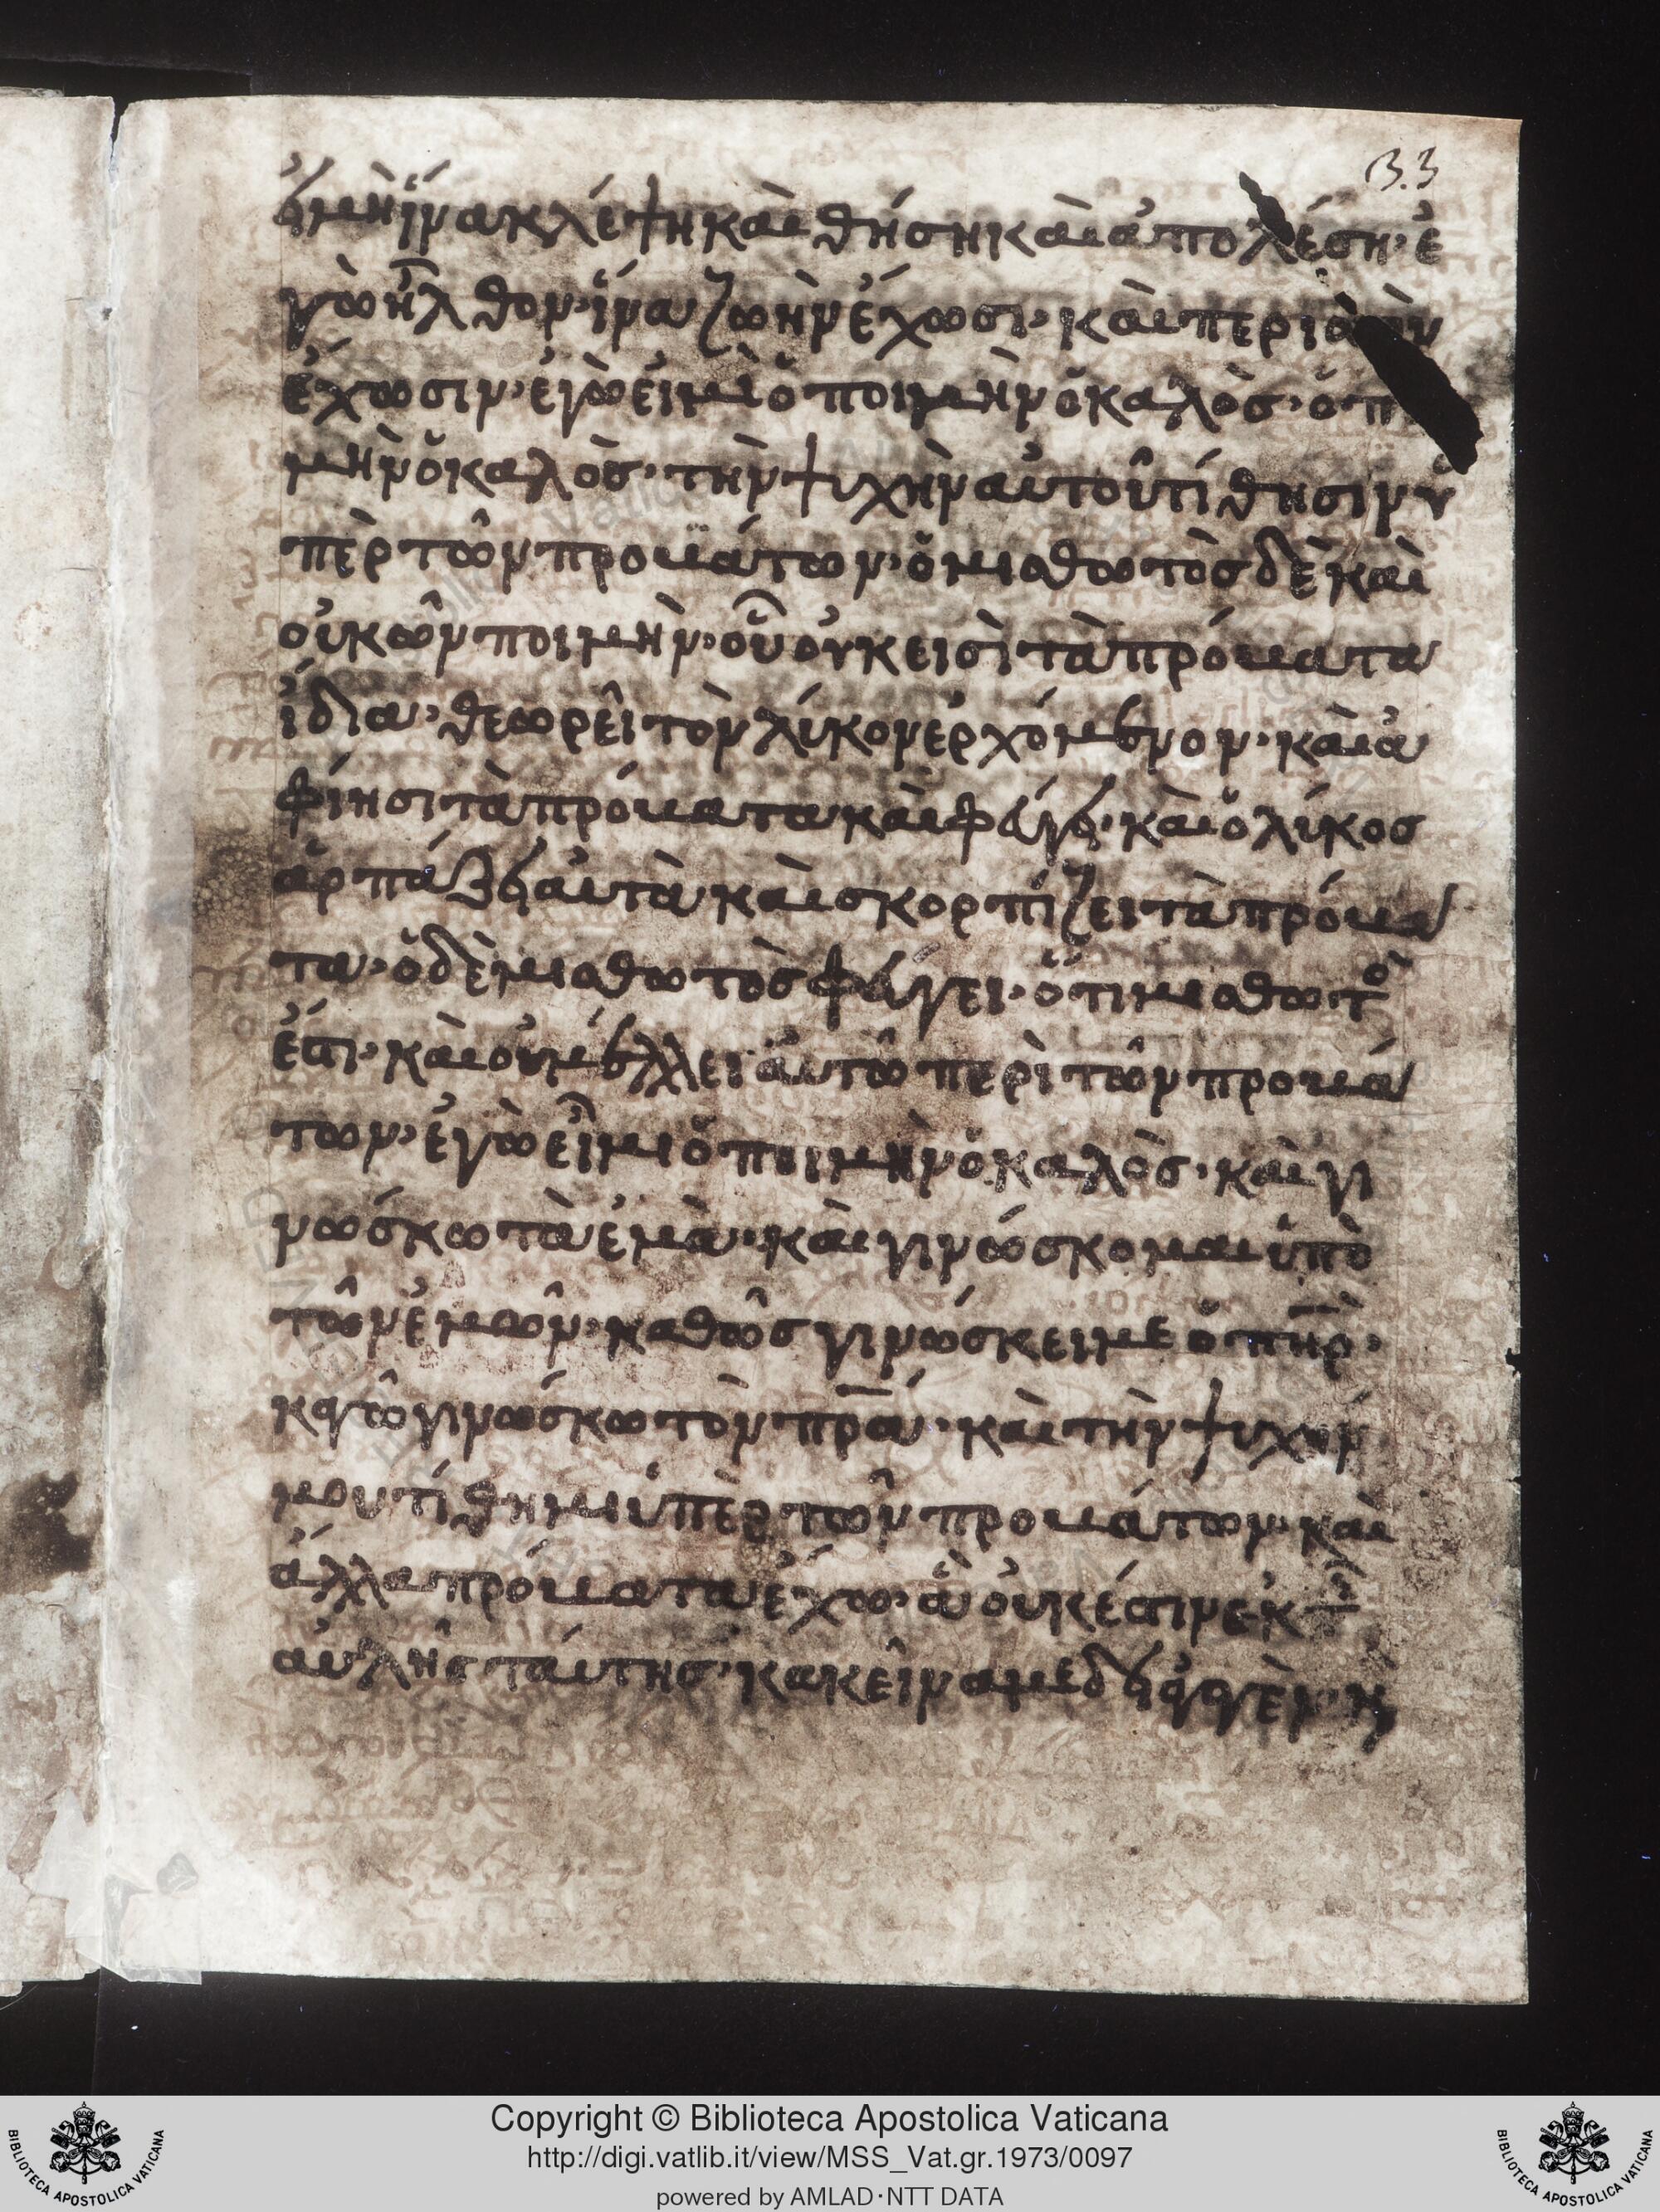 33
εἰ μὴ ἵνα κλέψη καὶ θήση καὶ ἀπολέση· ἐ
γὼ ἦλθον· ἵνα ζωὴν ἔχωσι· καὶ περισὸν
ἔχωσιν· ἐγὼ εἰμὶ ὁ ποιμὴν ὁ καλὸσ· ὁ π
μὴν ὁ καλὸσ· τὴν ψυχὴν αὐτοῦ τίθησιν ὑ
πὲρ τῶν προβάτων· ὁ μισθωτὸσ δὲ καὶ
οὐκ ὢν ποιμὴν· οὗ οὐκ εἰσὶ τὰ πρόβατα
ἴδια· θεωρεῖ τὸν λύκον ἐρχόμενον· καὶ ἀ
φίησι τὰ πρόβατα καὶ φεύγει· καὶ ὁ λύκοσ
ἁρπάζει αὐτὰ καὶ σκορπίζει τὰ πρόβα
τα· ὁ δὲ μισθωτὸσ φεύγει· ὅτι μισθωτὸ
ἐστι· καὶ οὐ μέλλει αὐτῶ περὶ τῶν προβά
των· ἐγὼ εἶμι ὁ ποιμὴν ὁ καλὸσ· καὶ γι
νώσκω τὰ ἐμὰ· καὶ γινώσκομαι ὑπὸ
τῶν ἐμῶν· καθῶσ γινώσκει με ὁ πὴρ·
καγὼ γινώσκω τὸν πρα· καὶ τὴν ψυχήν
μου τίθημι ὑπὲρ τῶν προβάτων· καὶ
ἄλλα πρόβατα ἔχω· ἃ οὐκ ἔστιν ἐκ τ
αὐλῆσ ταύτησ· κακεῖνα με δεῖ ἀγαγεὲν· κ
Copyright © Biblioteca Apostolica Vaticana
http://digi.vatlib.it/view/MSS_Vat.gr.1973/0097
powered by AMLAD·NTT DATA
BIBLIOTECA APOSTOLICA VATICANA
BIBLIOTECA APOSTOLICA VATICANA